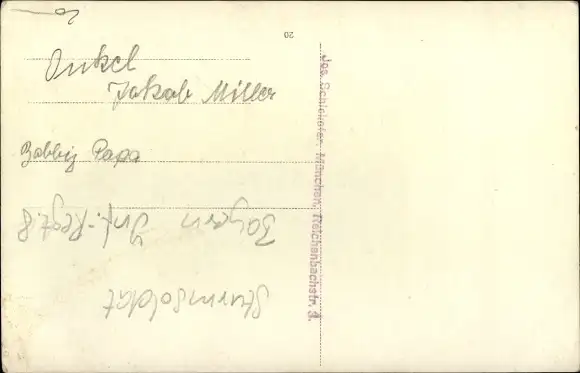 20
20
Onkel
Jakob Miller
Babbiz Papa
Bayern Inf.-Regt. 8
Sturmsoldat
Jos. Schiehofer, München, Reichenbachstr. 3.